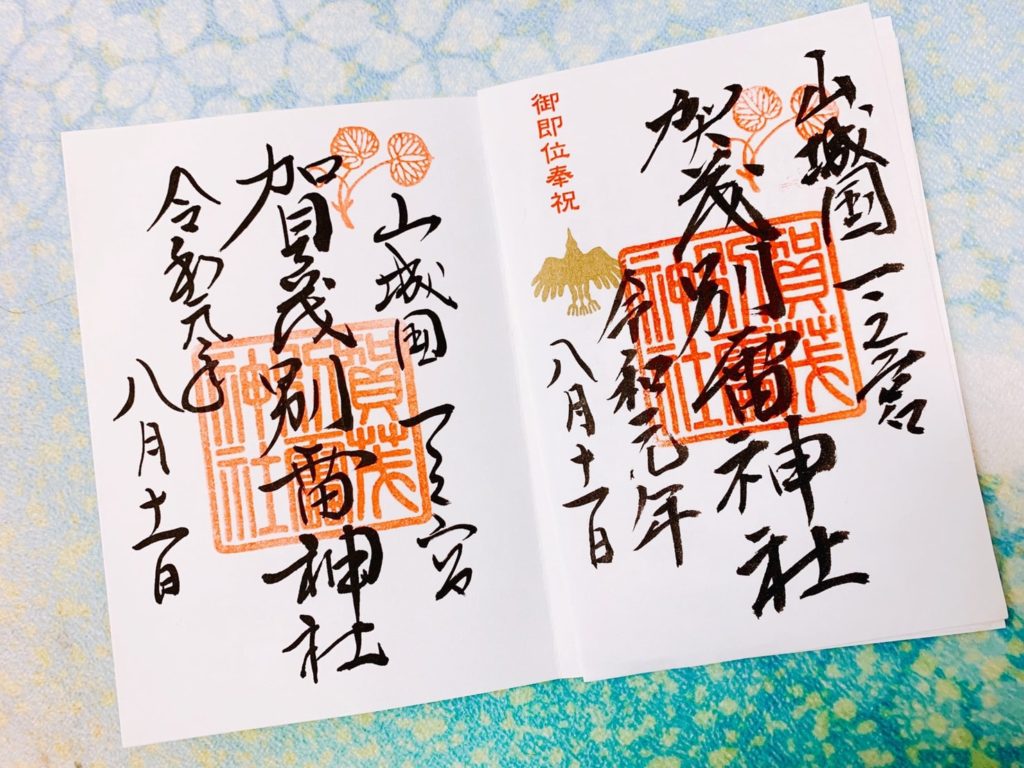 山城国 一之宮
賀茂別雷神社
賀茂別雷神社
御即位奉祝
令和元年
八月十一日
山城国 一之宮
賀茂別雷神社
賀茂別雷神社
令和元年
八月十一日